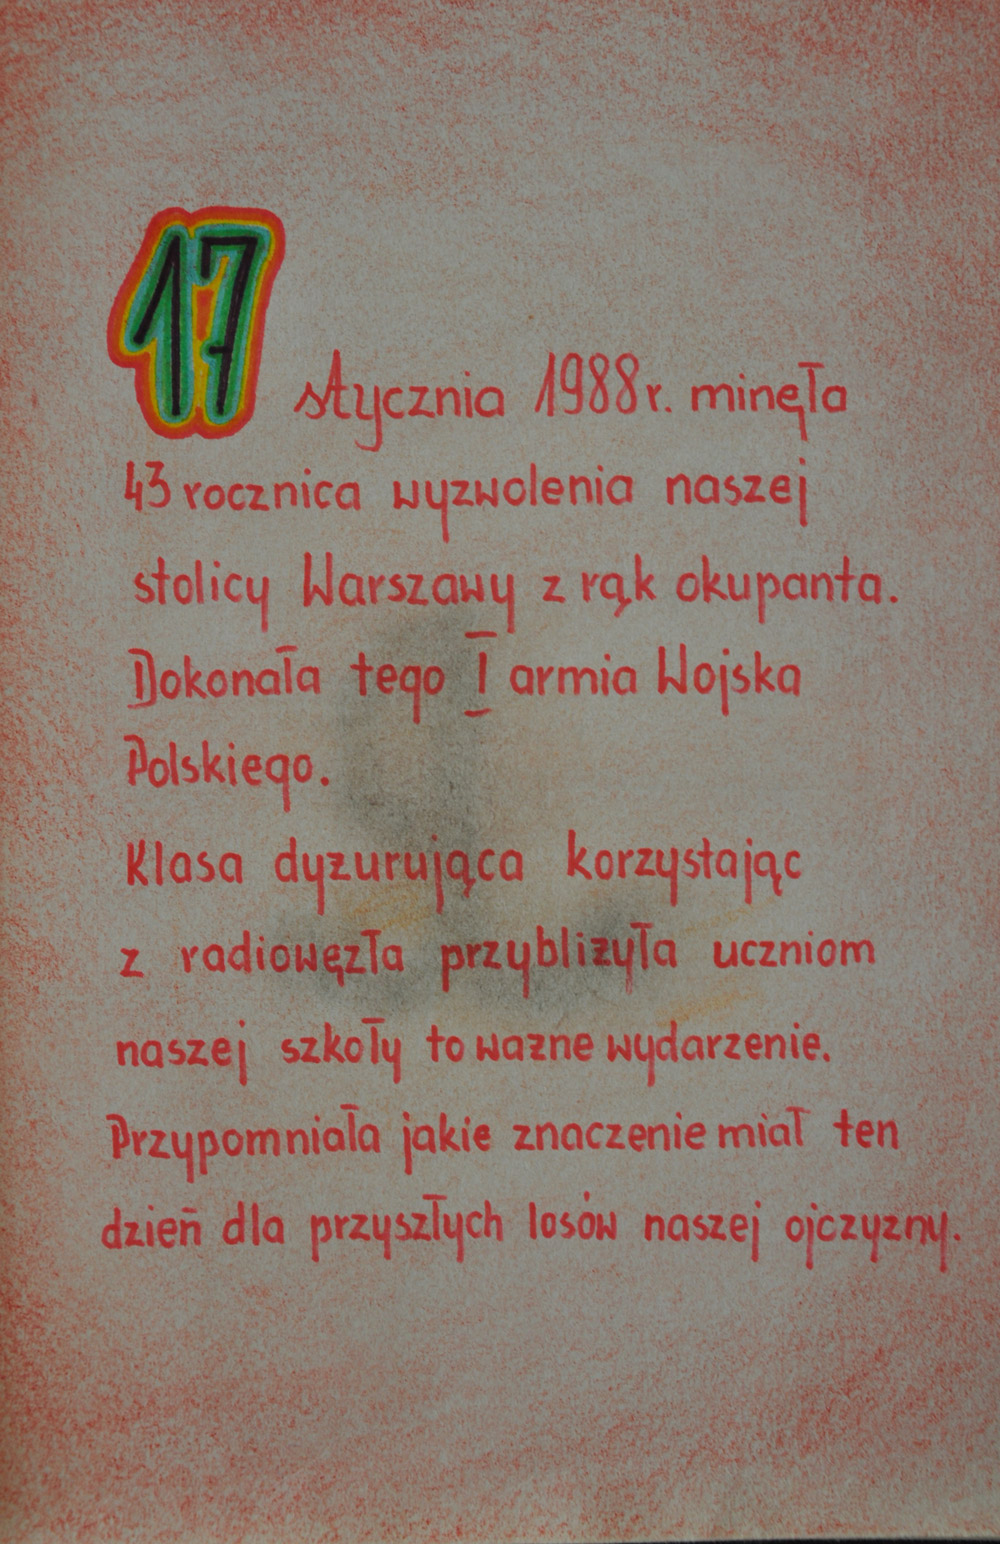 17 stycznia 1988r. minęła
43 rocznica wyzwolenia naszej
stolicy Warszawy z rąk okupanta.
Dokonała tego I armia Wojska
Polskiego.
Klasa dyżurująca korzystając
z radiowęzła przybliżyła uczniom
naszej szkoły to ważne wydarzenie.
Przypomniała jakie znaczenie miał ten
dzień dla przyszłych losów naszej ojczyzny.